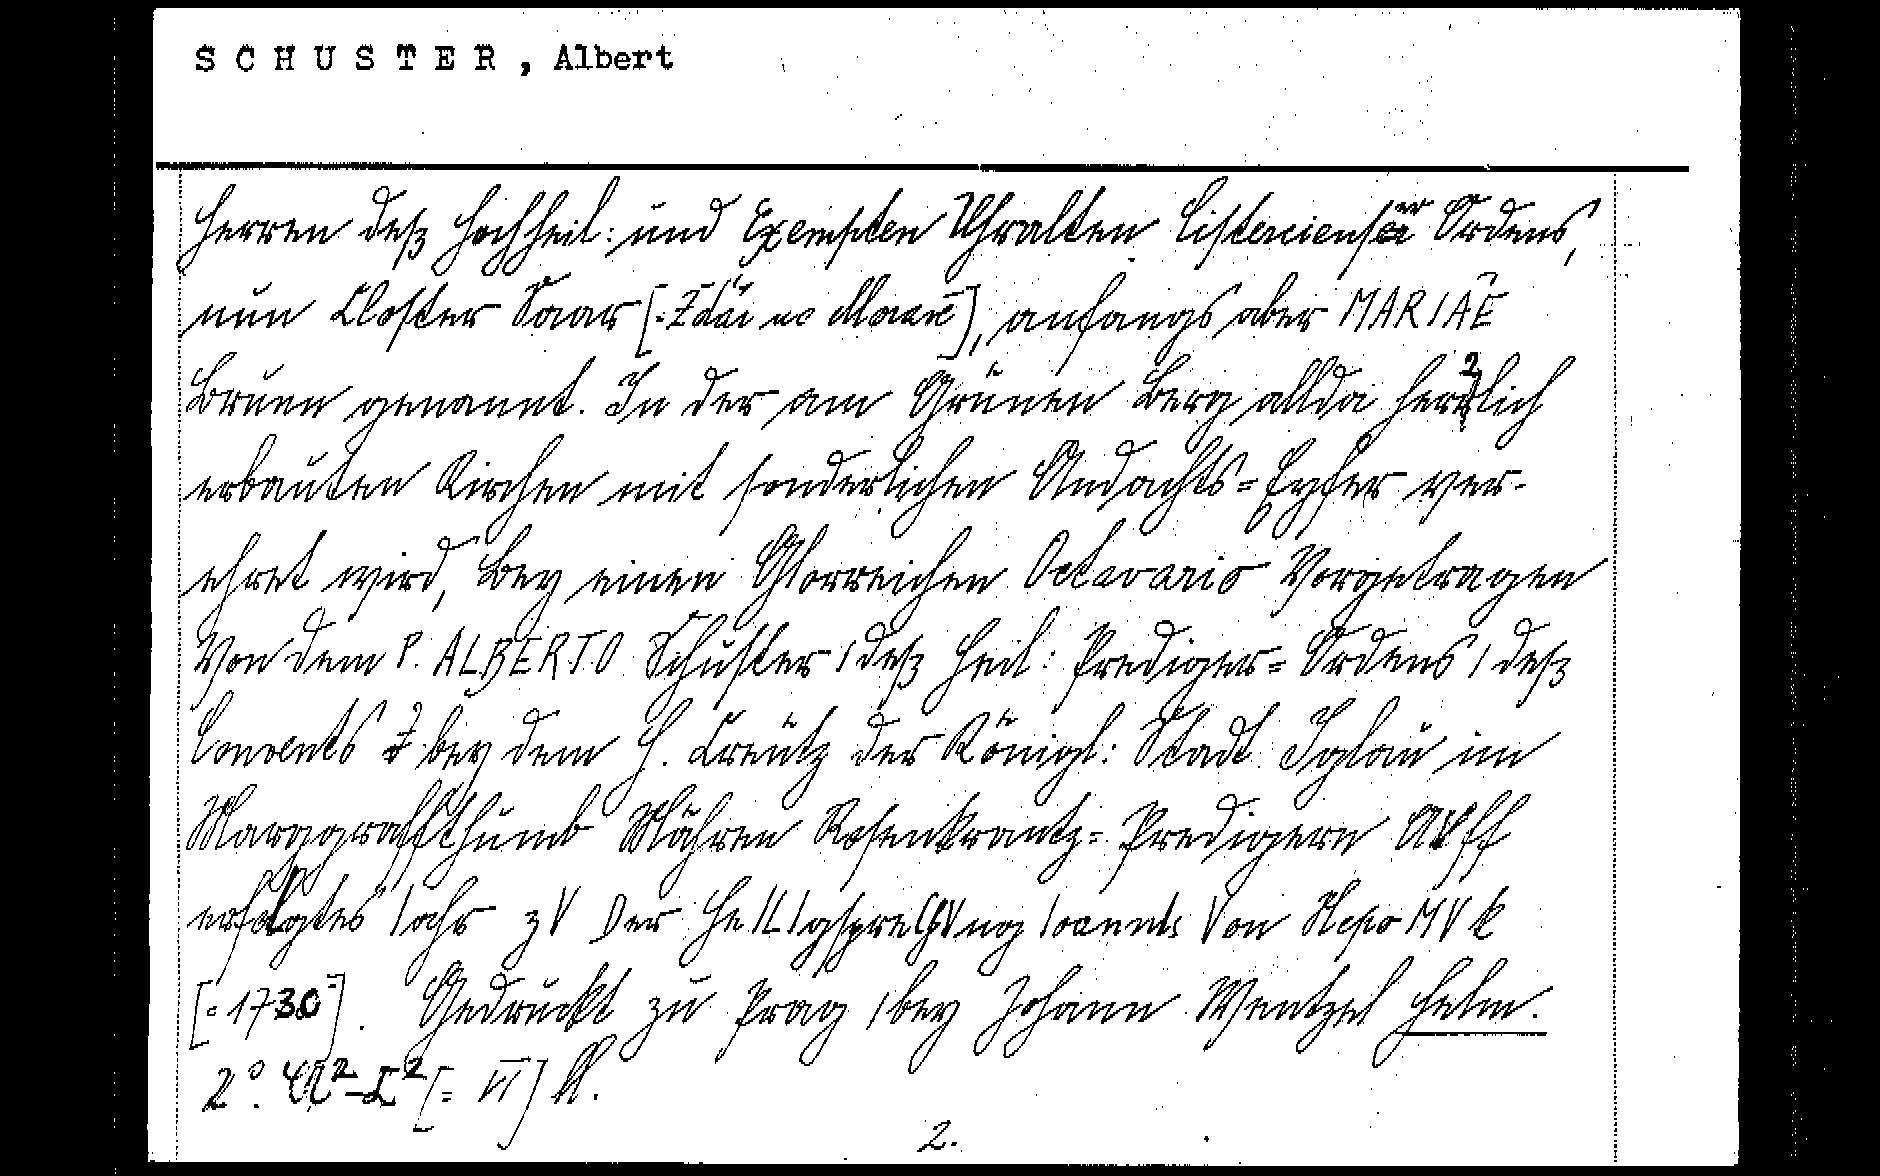 SCHUSTER, Albert
Herren deß Hochheil: und Exempten Uhralten Cistercienser Ordens,
nun Closter Saar [= Zdár na Moravě], anfangs aber MARIAE
Brunn genannt. In der am Grünen Berg allda herrlich
erbauten Kirchen mit sonderlichen Andachts=Eyfer ver-
ehret wird, bey einen Glorreichen Octavario Vorgetragen
Von dem P. ALBERTO Schuster / deß Heil: Prediger=Ordens / deß
Convents bey dem H. Creütz der Königl: Stadt Iglau im
Marggraffthumb Mähren Rosenkrantz=Predigern Auff
erfolgtes Iahr zV Der HeILIgspreChVng Ioannis Von NepoMVk
[=1730]. Gedruckt zu Prag / bey Johann Wentzel Helm.
2°. A²-L² [= VI] Bl.
2.